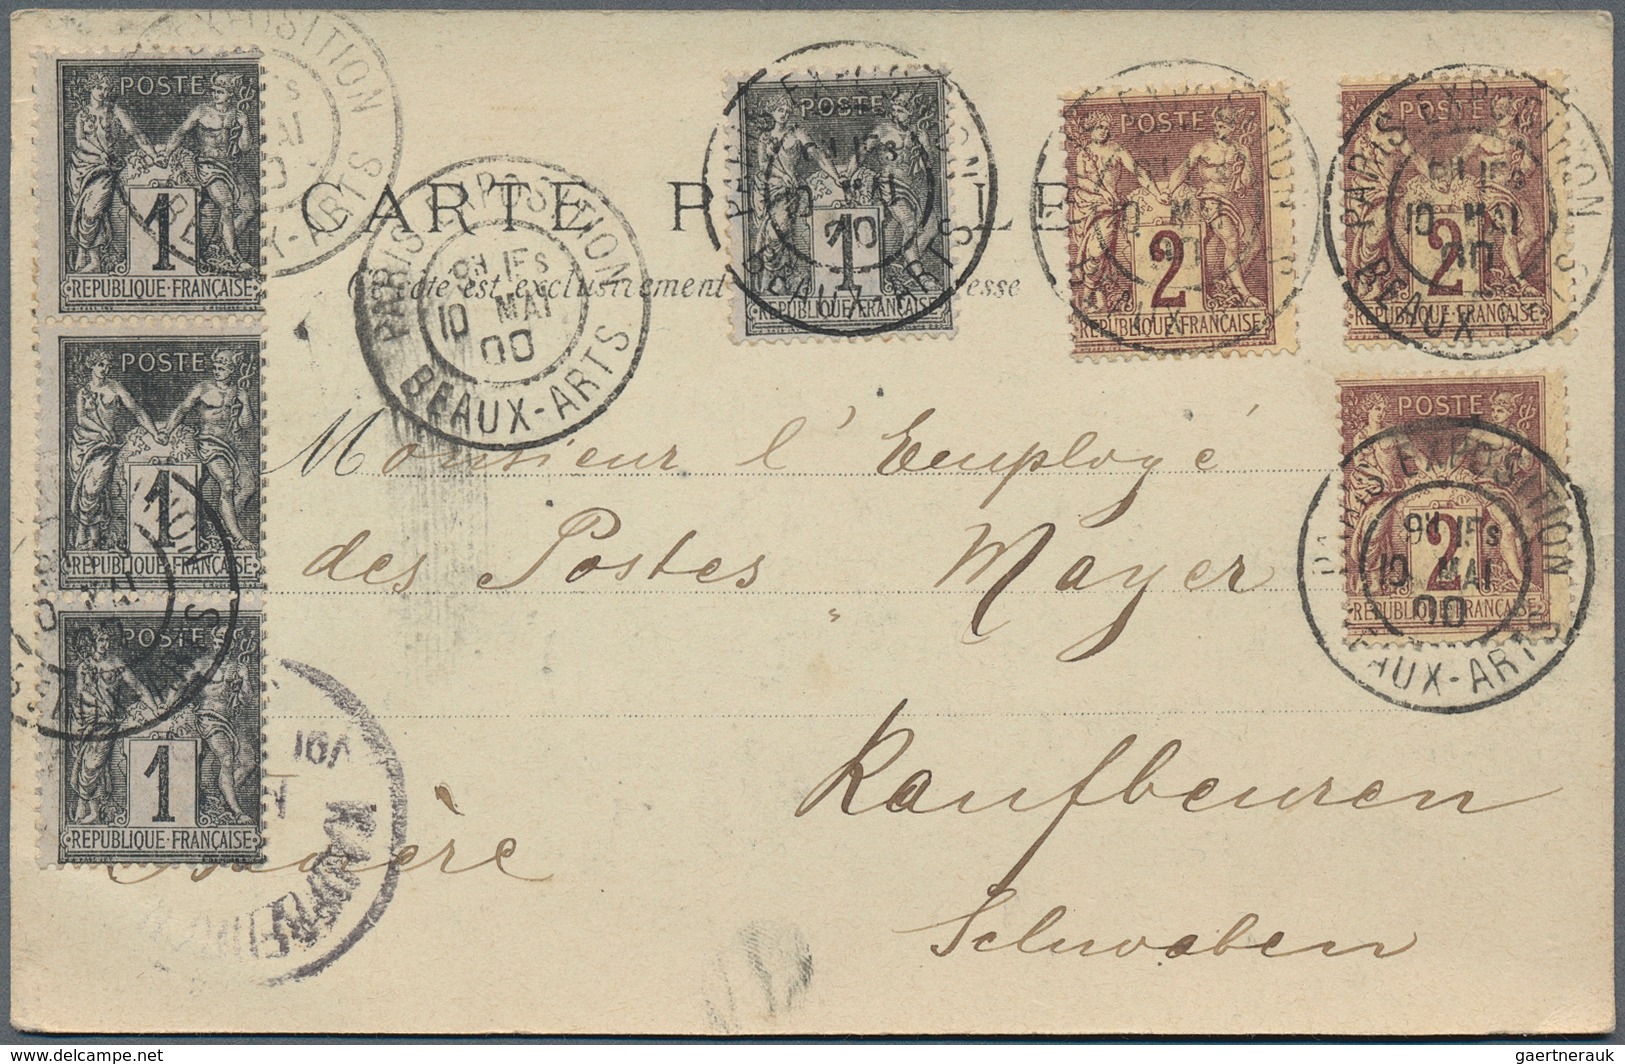 POSTE
1
REPUBLIQUE FRANÇAISE
POSTE
1
REPUBLIQUE FRANÇAISE
POSTE
1
REPUBLIQUE FRANÇAISE
POSTE
1
POSTE
2
REPUBLIQUE FRANÇAISE
POSTE
2
FRANÇAISE
POSTE
2
REPUBLIQUE FRANÇAISE
CARTE P LE
côté est exclusivement esse
PARIS EXPOSITION
9H 1Fs
10 MAI
00
BEAUX-ARTS
PARIS EXPOSITION
9H 1Fs
10 MAI
00
BEAUX-ARTS
PARIS EXPOSITION
9H 1Fs
10 MAI
00
BEAUX
PARIS EXPOSITION
9H 1Fs
10 MAI
00
BEAUX-ARTS
EXPOSITION
MAI
BEAUX-ARTS
Monsieur l'Employé
des Postes „ Mayer
Kaufbeuren
Schwaben
gaertnerauk